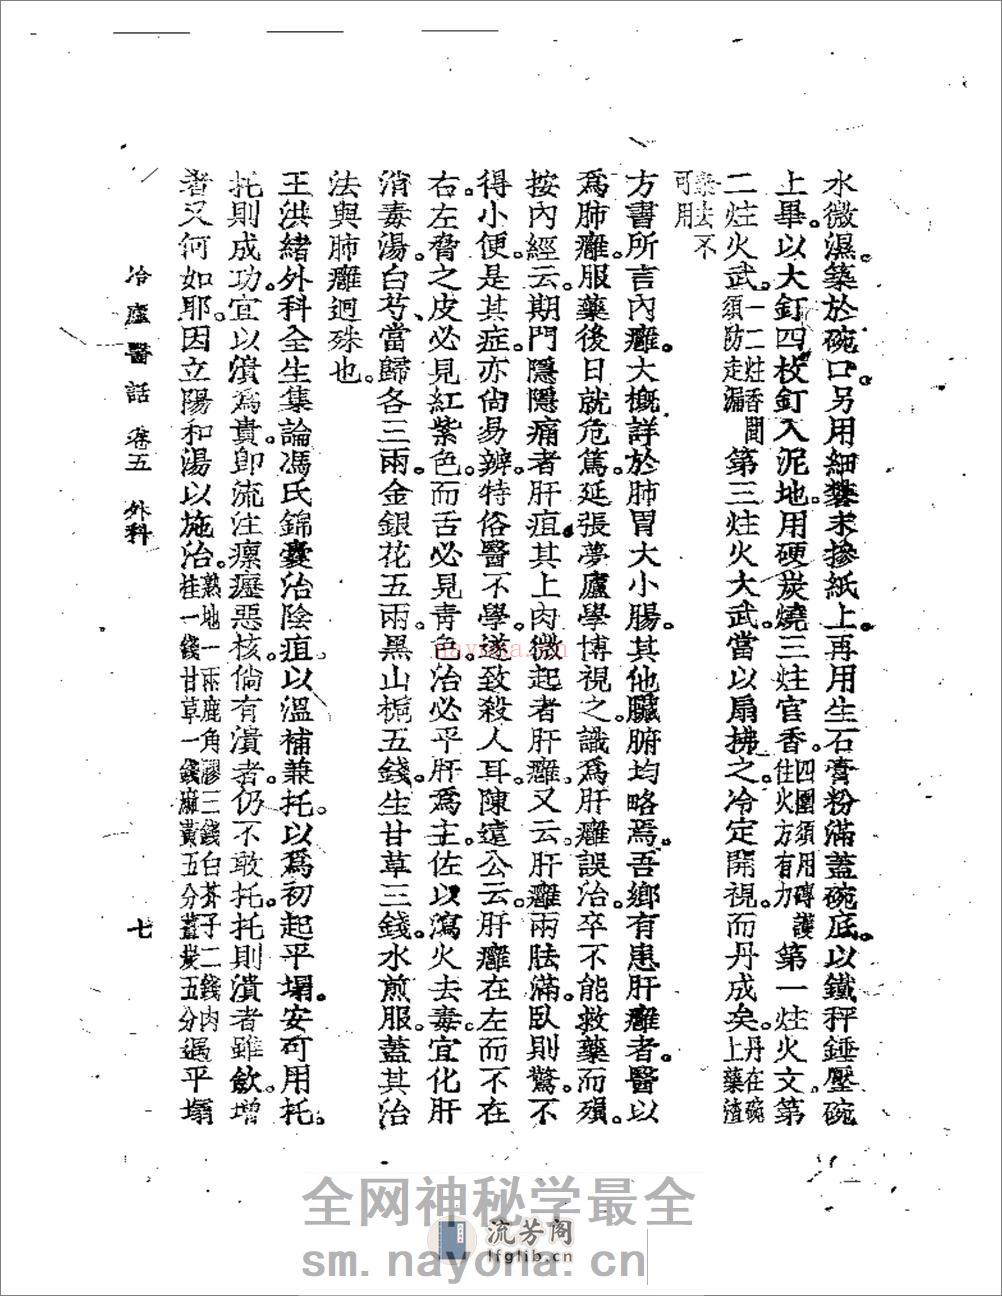 水微濕。築於碗口。另用細礬末摻紙上。再用生石膏粉滿蓋碗底。以鐵秤錘壓碗
上畢。以大釘四枚釘入泥地。用硬炭燒三炷官香。四圍須用磚護住火方有力第一炷火文。第
二炷火武。一二炷香間須防走漏第三炷火大武。當以扇拂之。冷定開視。而丹成矣。丹在碗上藥渣
藥去不可用
方書所言內癰。大概詳於肺胃大小腸。其他臟腑均略焉。吾鄉有患肝癰者。醫以
爲肺癰。服藥後日就危篤。延張夢廬學博視之。識爲肝癰誤治。卒不能救藥而殞。
按內經云。期門隱隱痛者肝疽。其上肉微起者肝癰。又云。肝癰兩胠滿。臥則驚。不
得小便。是其症。亦尙易辨。特俗醫不學。遂致殺人耳。陳遠公云。肝癰在左而不在
右。左脅之皮必見紅紫色。而舌必見靑色。治必平肝爲主。佐以瀉火去毒。宜化肝
消毒湯。白芍、當歸各三兩。金銀花五兩。黑山梔五錢。生甘草三錢。水煎服。蓋其治
法與肺癰迥殊也。
王洪緒外科全生集論馮氏錦囊治陰疽以溫補兼托。以爲初起平塌。安可用托。
托則成功。宜以潰爲貴。卽流注瘰癧惡核。倘有潰者。仍不敢托。托則潰者雖斂。增
者又何如耶。因立陽和湯以施治。熟地一兩鹿角膠三錢白芥子二錢肉桂一錢甘草一錢麻黃五分薑炭五分遇平塌
冷廬醫話 卷五 外科 七
nayona.cn
全网神秘学最全
流芳阁
lfglib.cn
sm.nayona.cn